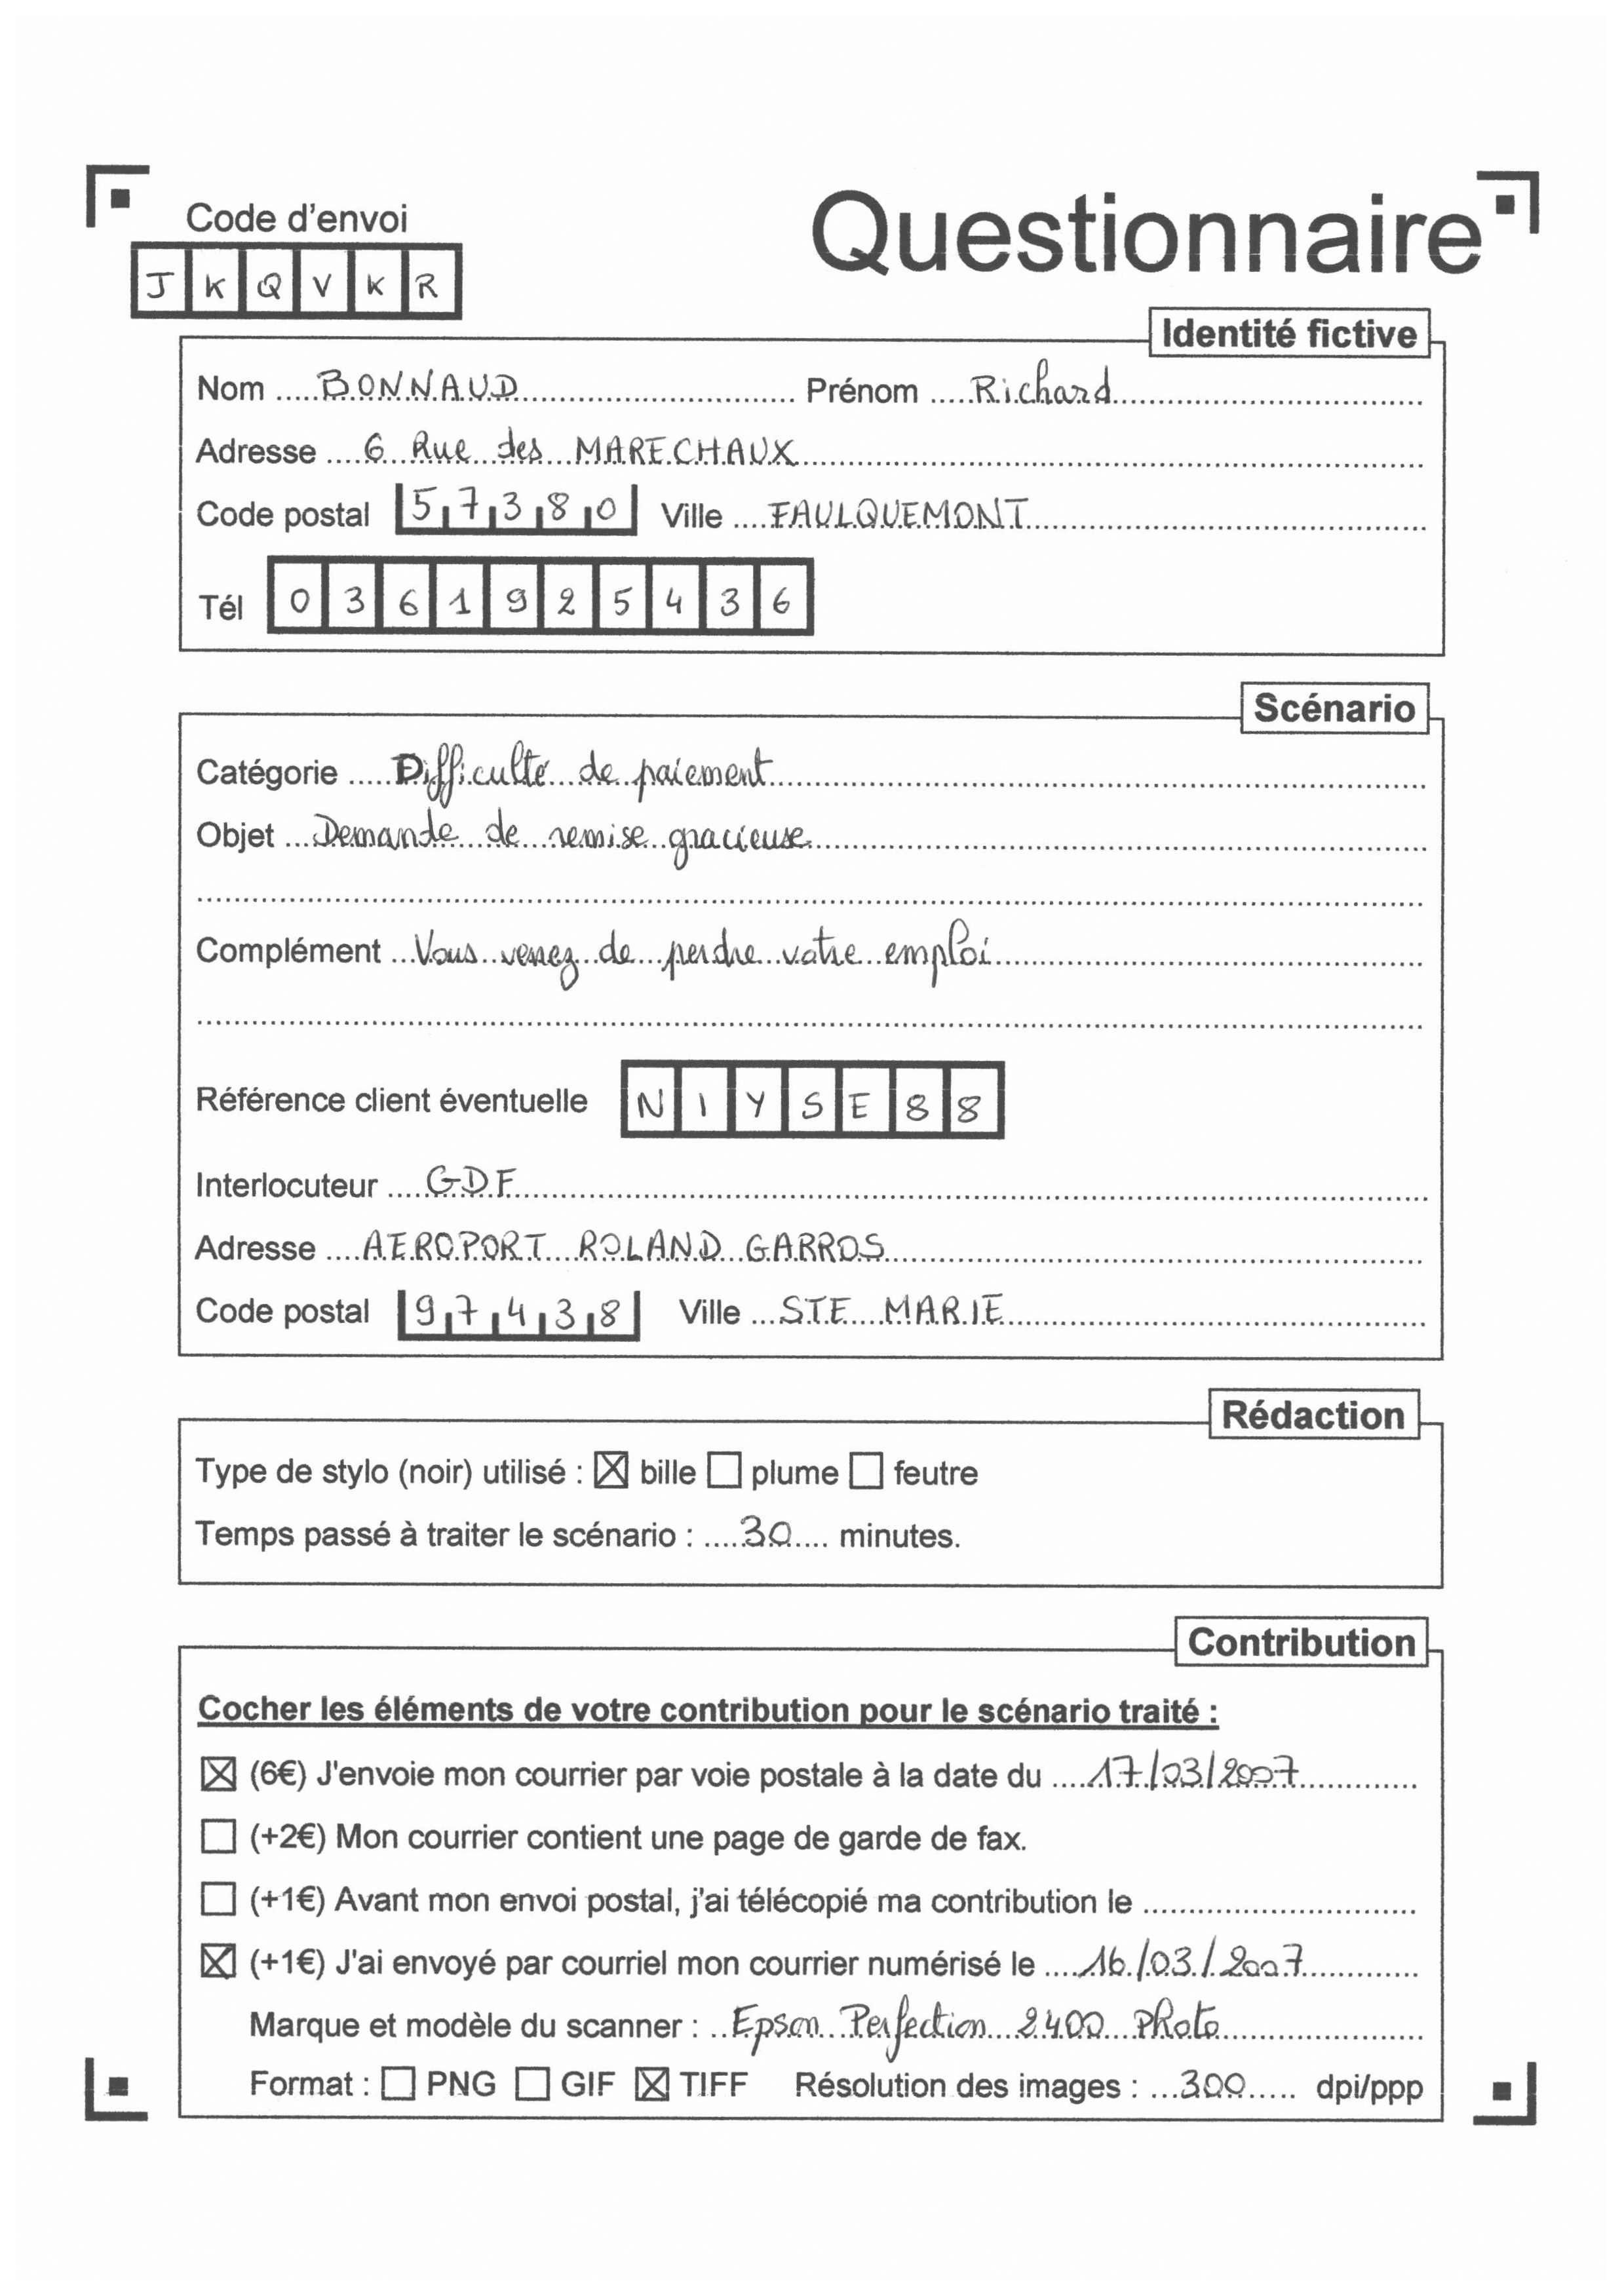 Code d'envoi
Questionnaire
J K Q V K R
Identité fictive
Nom ..... BONNAUD ..... Prénom ..... Richard .....
Adresse .... 6 Rue des MARECHAUX .....
Code postal 57380 Ville .... FAULQUEMONT .....
Tél 0361925436
Scénario
Catégorie ..... Difficulté de paiement .....
Objet ... Demande de remise gracieuse .....
Complément ... Vous venez de perdre votre emploi .....
Référence client éventuelle N I Y S E 8 8
Interlocuteur .... GDF .....
Adresse .... AEROPORT ROLAND GARROS .....
Code postal 97438 Ville ... STE MARIE .....
Rédaction
Type de stylo (noir) utilisé : ☒ bille ☐ plume ☐ feutre
Temps passé à traiter le scénario : .... 30 .... minutes.
Contribution
Cocher les éléments de votre contribution pour le scénario traité :
☒ (6€) J'envoie mon courrier par voie postale à la date du .... 17/03/2007 .....
☐ (+2€) Mon courrier contient une page de garde de fax.
☐ (+1€) Avant mon envoi postal, j'ai télécopié ma contribution le .....
☒ (+1€) J'ai envoyé par courriel mon courrier numérisé le .... 16/03/2007 .....
Marque et modèle du scanner : .. Epson Perfection 2400 Photo .....
Format : ☐ PNG ☐ GIF ☒ TIFF Résolution des images : ... 300 ..... dpi/ppp